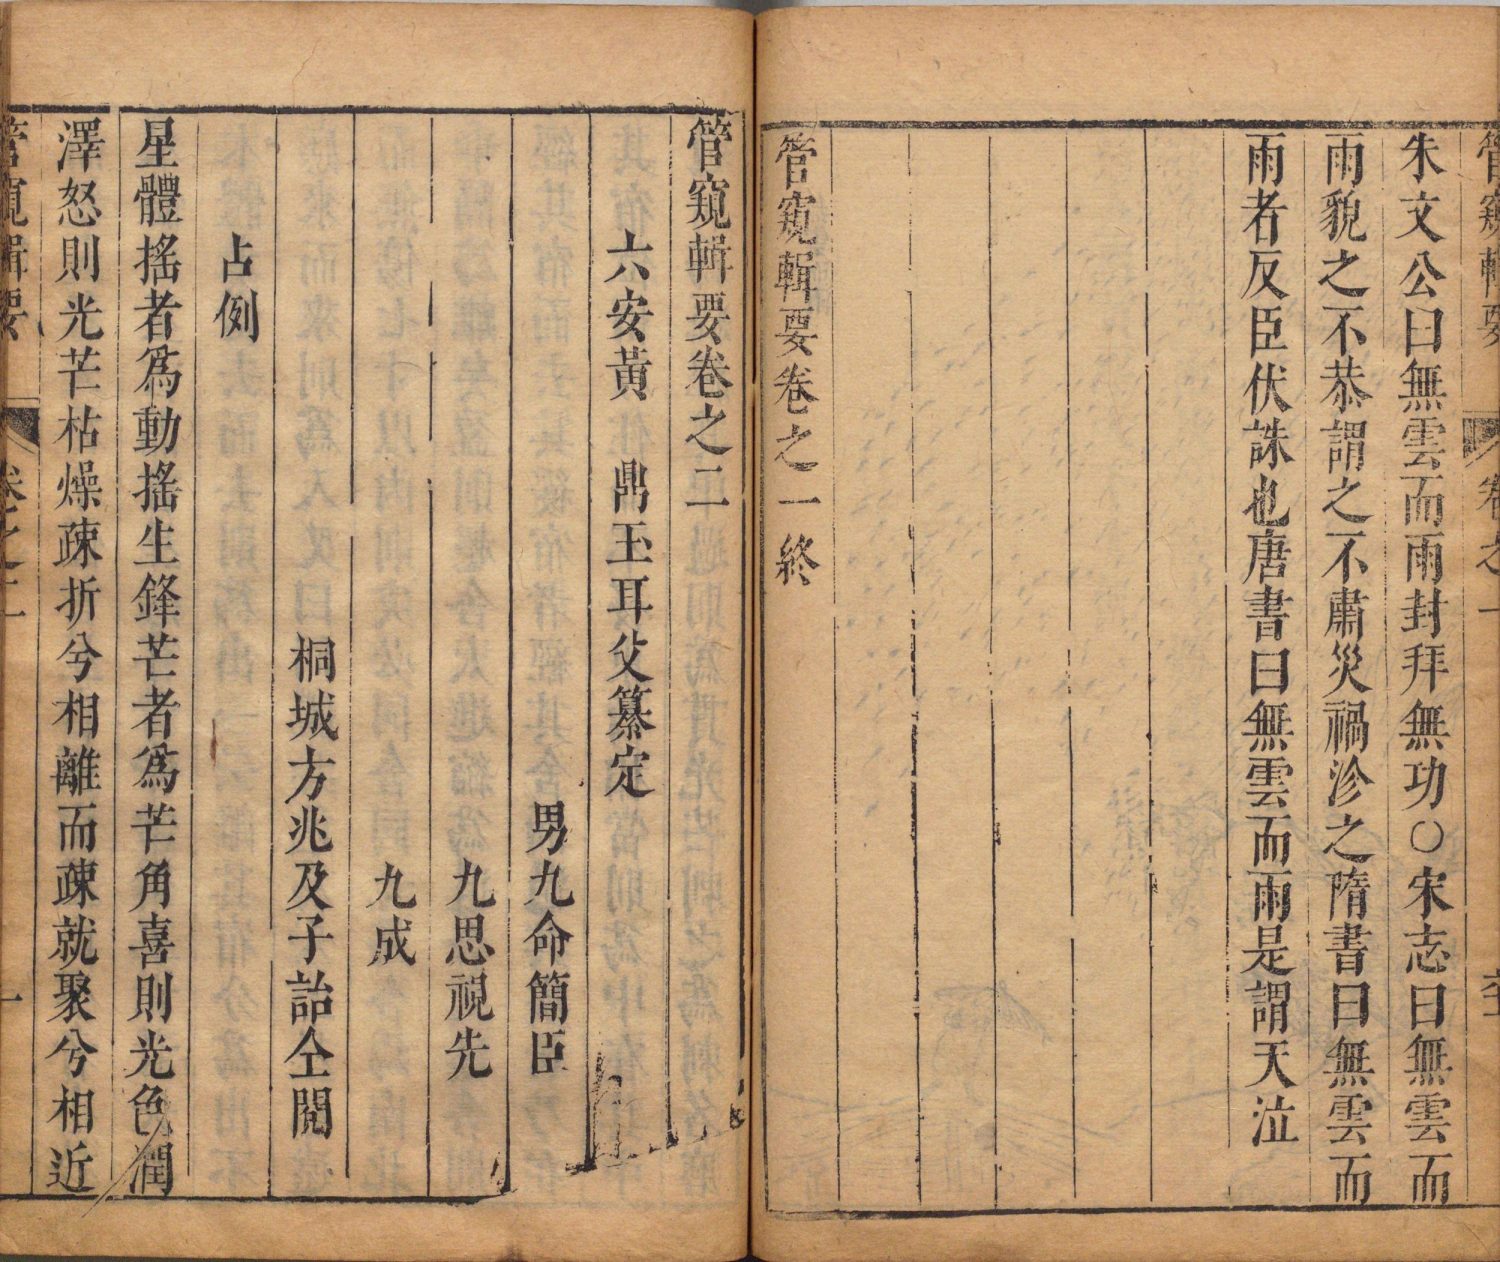 管窺輯要
卷之一
朱文公曰無雲而雨封拜無功○宋志曰無雲而
雨貌之不恭謂之不肅災禍沴之隋書曰無雲而
雨者反臣伏誅也唐書曰無雲而雨是謂天泣
管窺輯要卷之一終
管窺輯要卷之二
六安黃　鼎玉耳父纂定
男九命簡臣
九思視先
九成
桐城方兆及子詒仝閱
占例
星體搖者爲動搖生鋒芒者爲芒角喜則光色潤
澤怒則光芒枯燥疎折兮相離而疎就聚兮相近
管窺輯要
卷之二
一